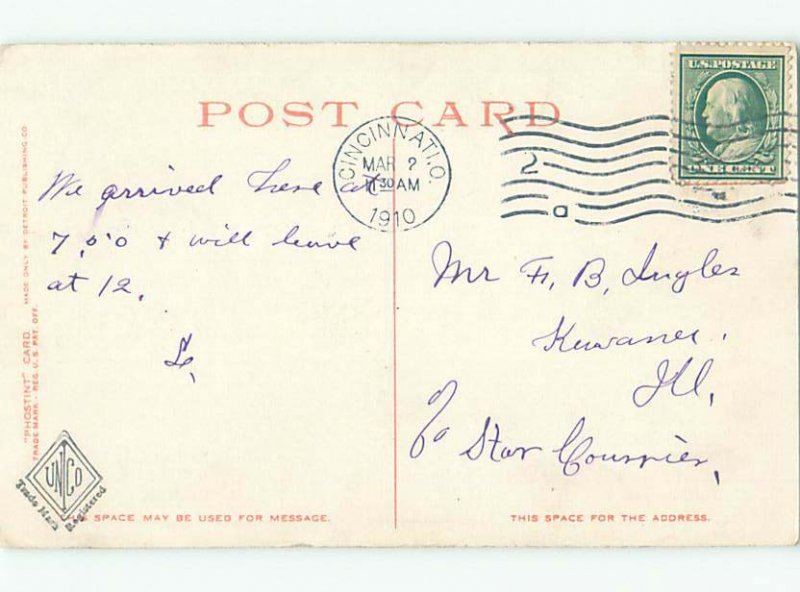 POST CARD
U.S. POSTAGE
ONE CENT
CINCINNATI, O.
MAR 2
11 30 AM
1910
2
a
We arrived here at
7.50 & will leave
at 12.
Mr F. B. Ingles
Kewanee,
Ill,
c/o Star Courrier,
"PHOSTINT" CARD MADE ONLY BY DETROIT PUBLISHING CO.
TRADE MARK - REG. U.S. PAT. OFF.
UNCO
Trade Mark
Registered
SPACE MAY BE USED FOR MESSAGE.
THIS SPACE FOR THE ADDRESS.